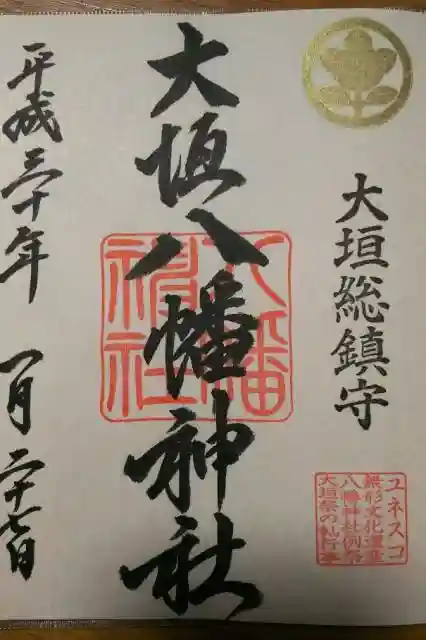 大垣総鎮守
ユネスコ
無形文化遺産
八幡神社例祭
大垣祭の軕行事
大垣八幡神社
八幡
神社
平成三十年 一月二十七日